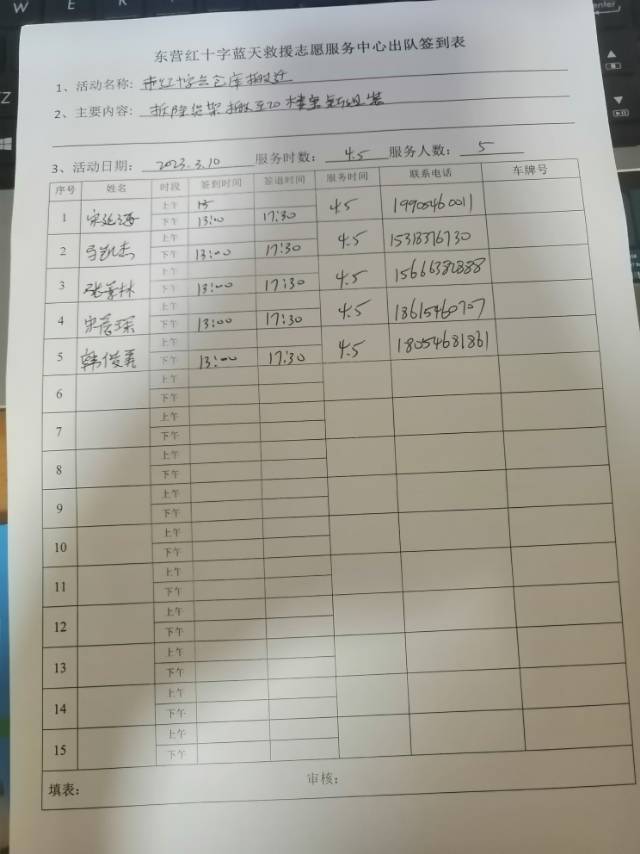 东营红十字蓝天救援志愿服务中心出队签到表
1、活动名称: 市红十字会仓库搬迁
2、主要内容: 拆除货架搬至20楼重新组装
3、活动日期: 2023.3.10 服务时数: 4.5 服务人数: 5
序号 姓名 时段 签到时间 签退时间 服务时间 联系电话 车牌号
上午 13
1 宋延海 下午 13:00 17:30 4.5 19905460011
上午
2 凯杰 下午 13:00 17:30 4.5 15318376730
上午
3 张 林 下午 13:00 17:30 4.5 15666382888
上午
4 宋 琛 下午 13:00 17:30 4.5 18615460707
上午
5 韩俊 下午 13:00 17:30 4.5 18054681861
上午
6 下午
上午
7 下午
上午
8 下午
上午
9 下午
上午
10 下午
上午
11 下午
上午
12 下午
上午
13 下午
上午
14 下午
上午
15 下午
填表: 审核: